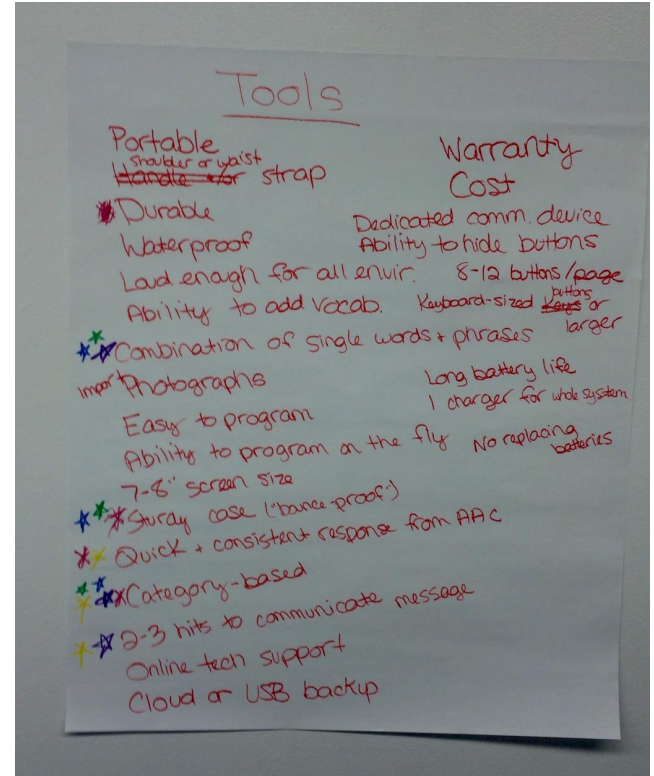 Tools
Portable
shoulder or waist
Handle +/or strap
Durable
Waterproof
Loud enough for all envir.
Ability to add vocab.
Combination of single words + phrases
import Photographs
Easy to program
Ability to program on the fly
7-8" screen size
Sturdy case ("bounce-proof")
Quick + consistent response from AAC
Category-based
2-3 hits to communicate message
Online tech support
Cloud or USB backup
Warranty
Cost
Dedicated comm. device
Ability to hide buttons
8-12 buttons/page
buttons
Keyboard-sized keys or
larger
Long battery life
1 charger for whole system
No replacing
batteries